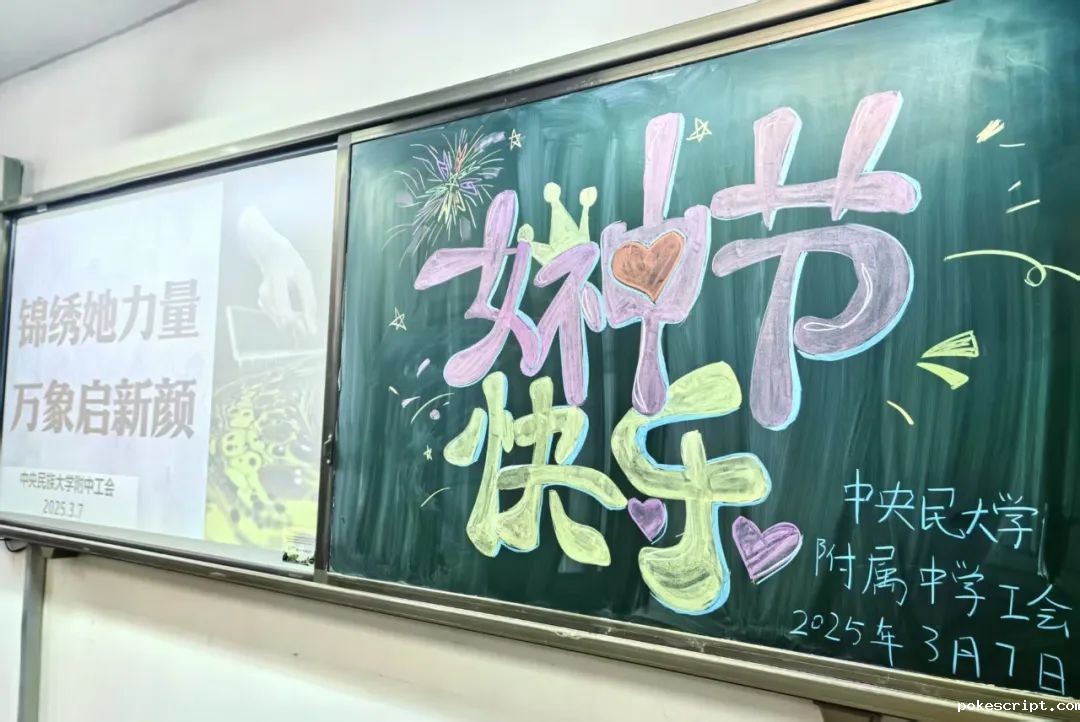 锦绣她力量
万象启新颜
中央民族大学附中工会
2025.3.7
女神节
快乐
中央民大学
附属中学工会
2025年3月7日
pokescript.com